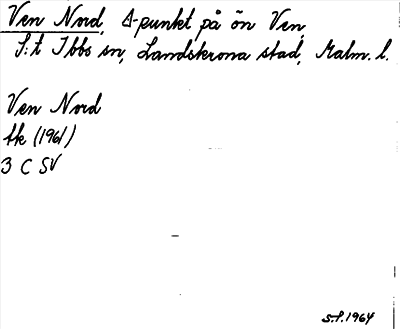 Ven Nord, Δ-punkt på ön Ven,
S:t Ibbs sn, Landskrona stad, Malm. l.
Ven Nord
tk (1961)
3 C SV
S.P. 1964